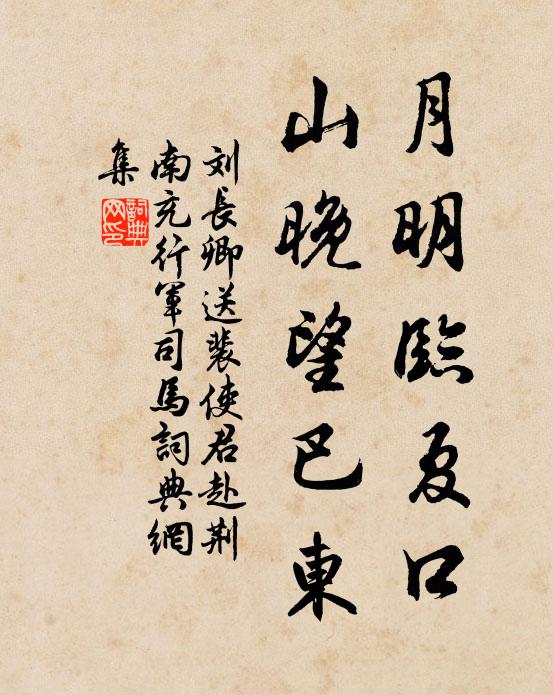 月明臨夏口
山晚望巴東
刘長卿送裴使君赴荆
南充行軍司馬詞典網
集
詞典網印